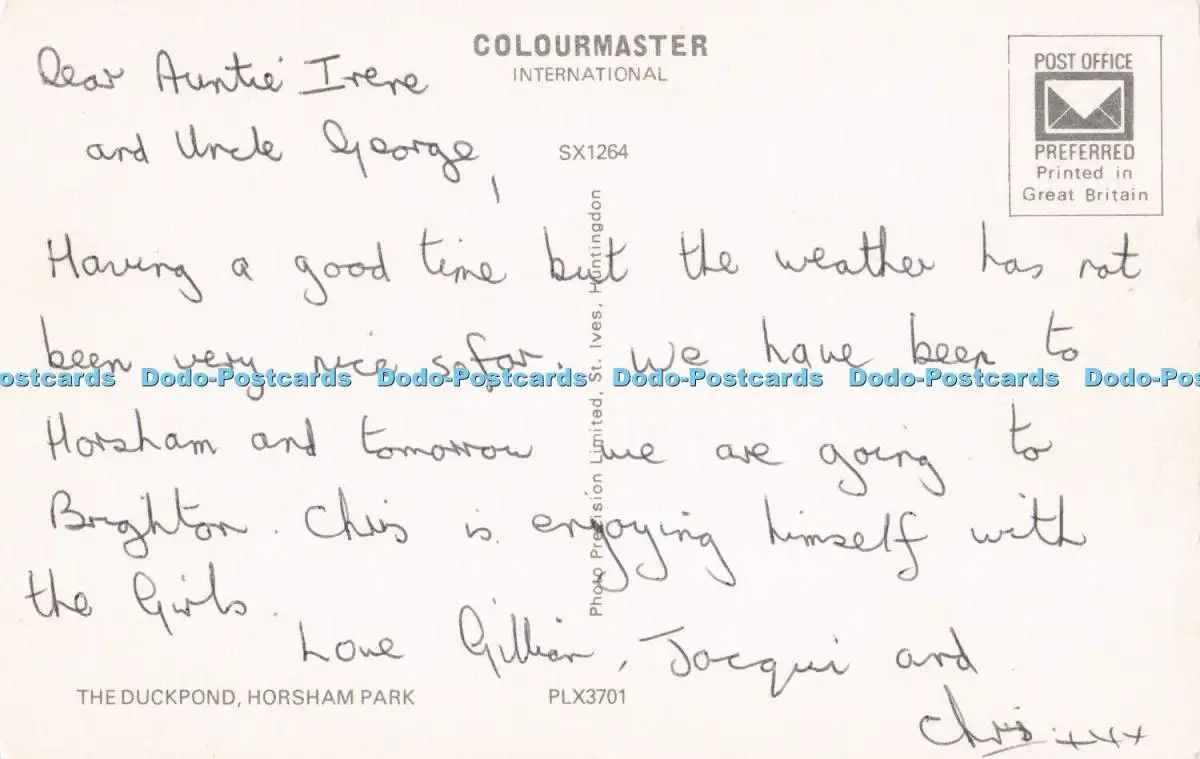 COLOURMASTER
INTERNATIONAL
POST OFFICE
PREFERRED
Printed in
Great Britain
SX1264
Dear Auntie Irene
and Uncle George,
Having a good time but the weather has not
been very nice so far. We have been to
Dodo-Postcards Dodo-Postcards Dodo-Postcards Dodo-Postcards
Horsham and tomorrow we are going to
Brighton. Chris is enjoying himself with
the Girls.
Love Gillian, Jacqui and
Chris xxx
Photo Precision Limited, St. Ives, Huntingdon
THE DUCKPOND, HORSHAM PARK
PLX3701